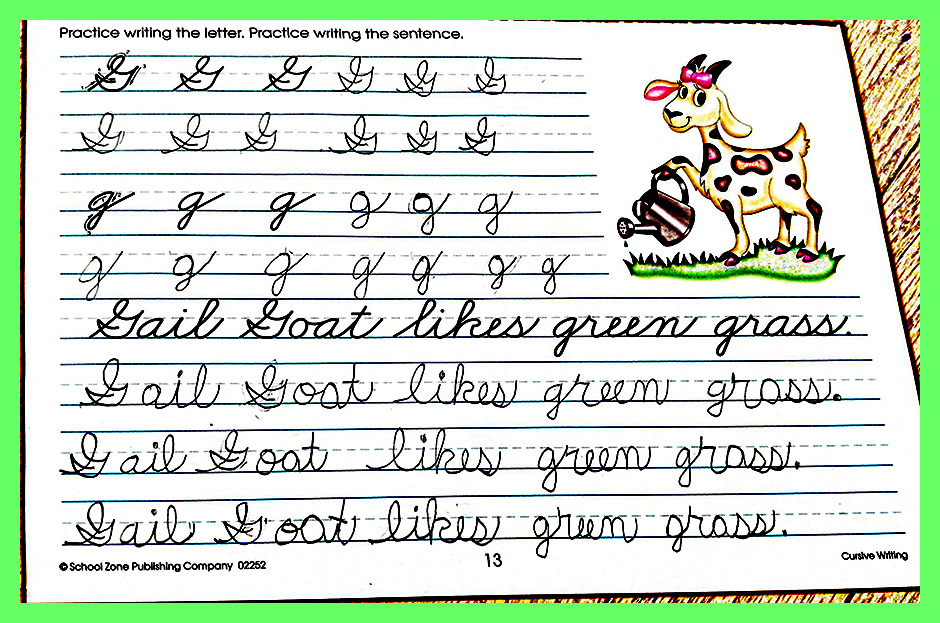 Practice writing the letter. Practice writing the sentence.
G G G G G G
G G G G G G
g g g g g g
g g g g g g g
Gail Goat likes green grass.
Gail Goat likes green grass.
Gail Goat likes green grass.
Gail Goat likes green grass.
© School Zone Publishing Company 02252 13 Cursive Writing